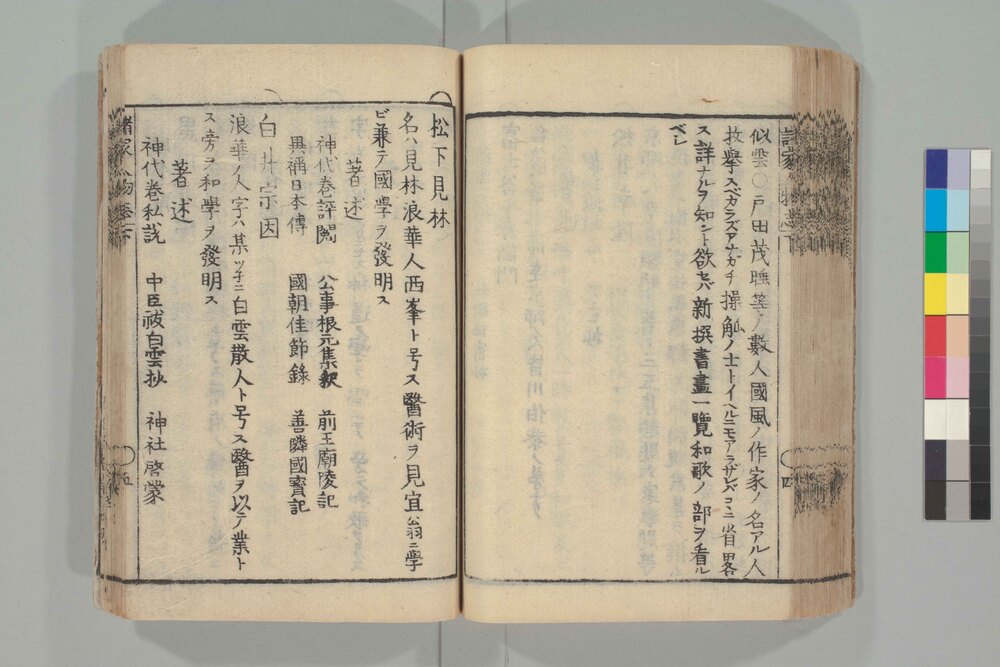 似雲〇戸田茂睡等ノ數人國風ノ作家ノ名アル人
枚擧スベカラズアナガチ操觚ノ士トイヘルニモアラザレバコヽニ省畧
ス詳ナルヲ知ント欲セバ新撰書畫一覽和歌ノ部ヲ看ル
ベシ
松下見林
名ハ見林浪華人西峯ト号ス醫術ヲ見宜翁ニ學
ビ兼テ國學ヲ發明ス
著述
神代巻評閲 公事根元集釈 前王廟陵記
異稱日本傳 國朝佳節錄 善隣國寶記
白井宗因
浪華ノ人字ハ某ツ子ニ白雲散人ト号ス醫ヲ以テ業ト
ス旁ヲ和學ヲ發明ス
著述
神代巻私説 中臣祓白雲抄 神社啓蒙